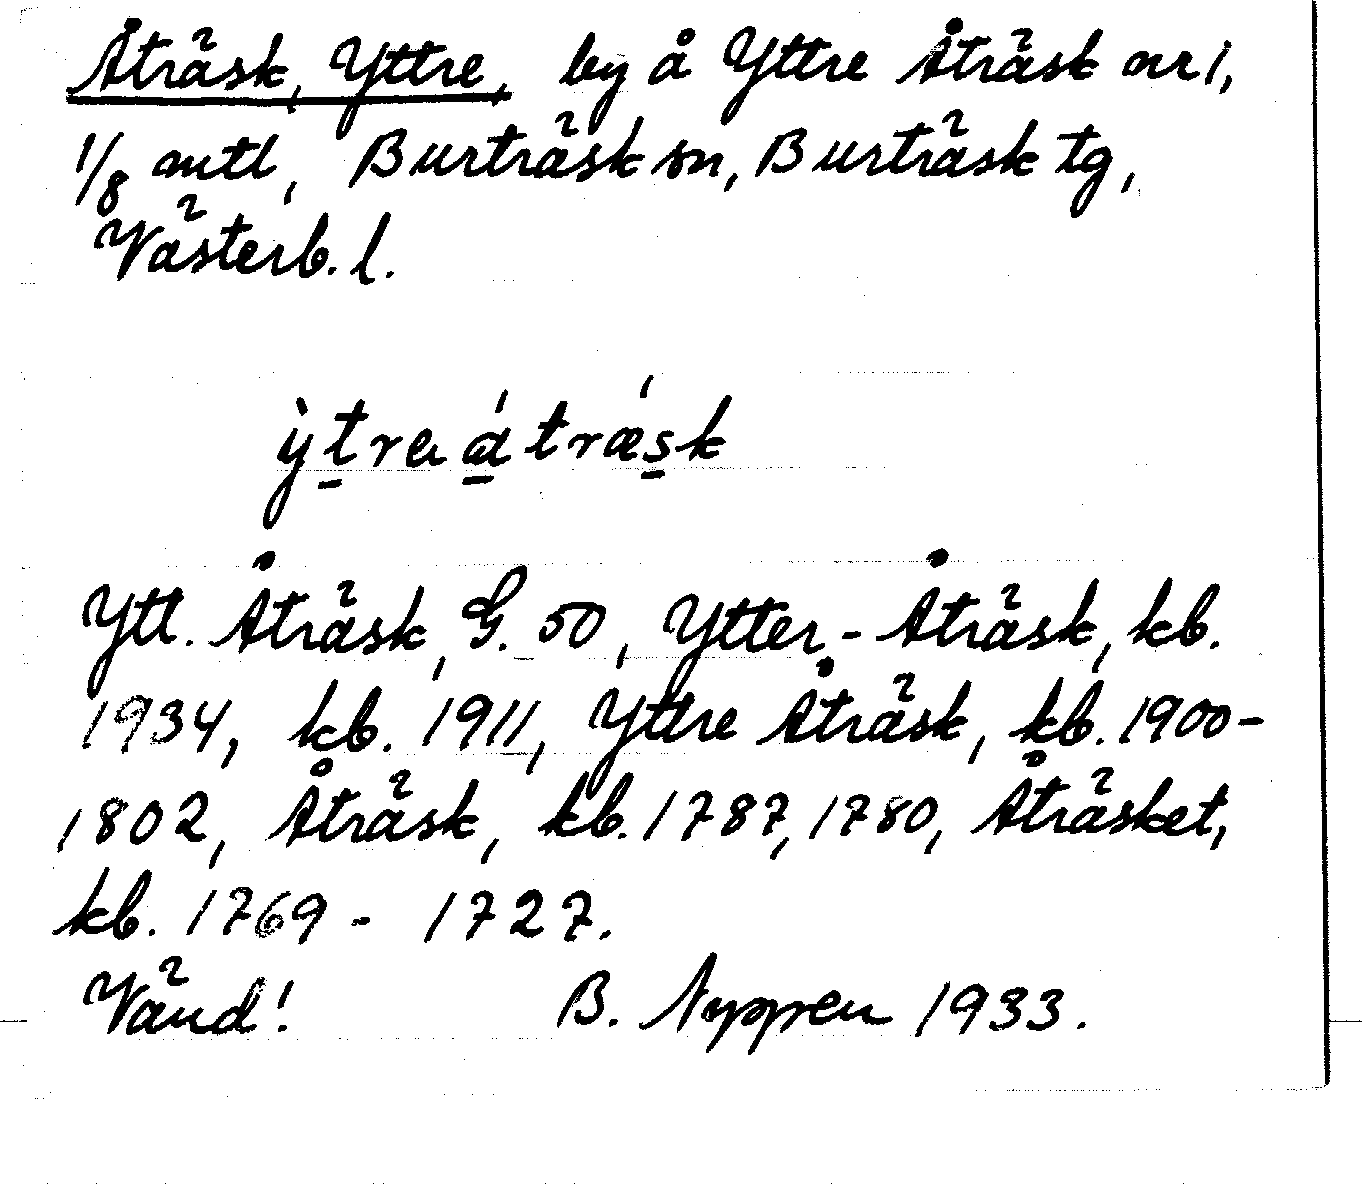 Åträsk, Yttre, by å Yttre Åträsk nr 1,
1/8 mtl, Burträsk sn, Burträsk tg,
Västerb. l.
ỳtreá̲trǽ̲sk
Ytt. Åträsk, G. 50, Ytter-Åträsk, kb.
1934, kb. 1911, Yttre Åträsk, kb. 1900-
1802, Åträsk, kb. 1787, 1780, Åträsket,
kb. 1769 - 1727.
Vänd! B. Nyppen 1933.